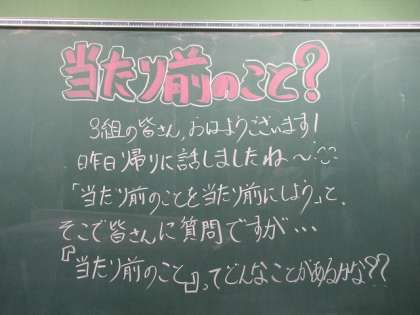 当たり前のこと?
3組の皆さん,おはようございます!
昨日帰りに話しましたね〜
「当たり前のことを当たり前にしよう」と.
そこで皆さんに質問ですが…
『当たり前のこと』ってどんなことがあるかな??